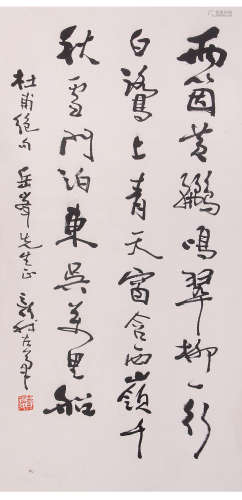 两箇黄鸝鳴翠柳一行
白鷺上青天窗含西嶺千
秋雪門泊東吴万里船
杜甫絕句 岳峯先生正